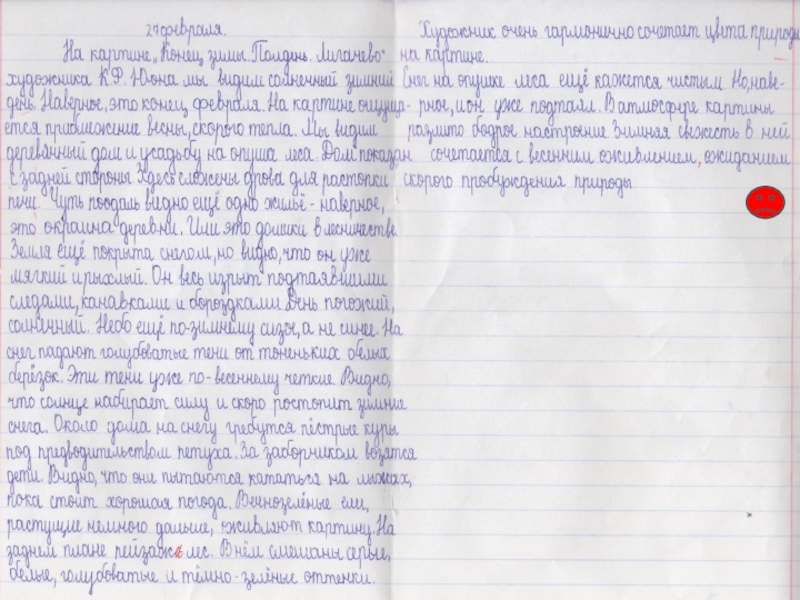 27 февраля.
На картине „Конец зимы. Полдень. Лигачево"
художника К.Ф. Юона мы видим солнечный зимний
день. Наверное, это конец февраля. На картине ощуща-
ется приближение весны, скорого тепла. Мы видим
деревянный дом и усадьбу на опуша леса. Дом показан
с задней стороны. Здесь сложены дрова для растопки
печи. Чуть поодаль видно ещё одно жильё - наверное,
это окраина деревни. Или это домики в лесничестве.
Земля ещё покрыта снегом, но видно, что он уже
мягкий и рыхлый. Он весь изрыт подтаявшими
следами, канавками и бороздками. День погожий,
солнечный. Небо ещё по-зимнему сизое, а не синее. На
снег падают голубоватые тени от тоненьких белых
берёзок. Эти тени уже по-весеннему четкие. Видно,
что солнце набирает силу и скоро ростопит зимние
снега. Около дома на снегу гребутся пёстрые куры
под предводительством петуха. За заборчиком возятся
дети. Видно, что они пытаются кататься на лыжах,
пока стоит хорошая погода. Вечнозелёные ели,
растущие немного дальше, оживляют картину. На
заднем плане пейзажа лес. В нём смешаны серые,
белые, голубоватые и тёмно-зелёные оттенки.
Художник очень гармонично сочетает цвета природы
на картине.
Снег на опушке леса ещё кажется чистым. Но, наве-
рное, и он уже подтаял. В атмосфере картины
разлито бодрое настроение. Зимняя свежесть в ней
сочетается с весенним оживлением, ожиданием
скорого пробуждения природы.